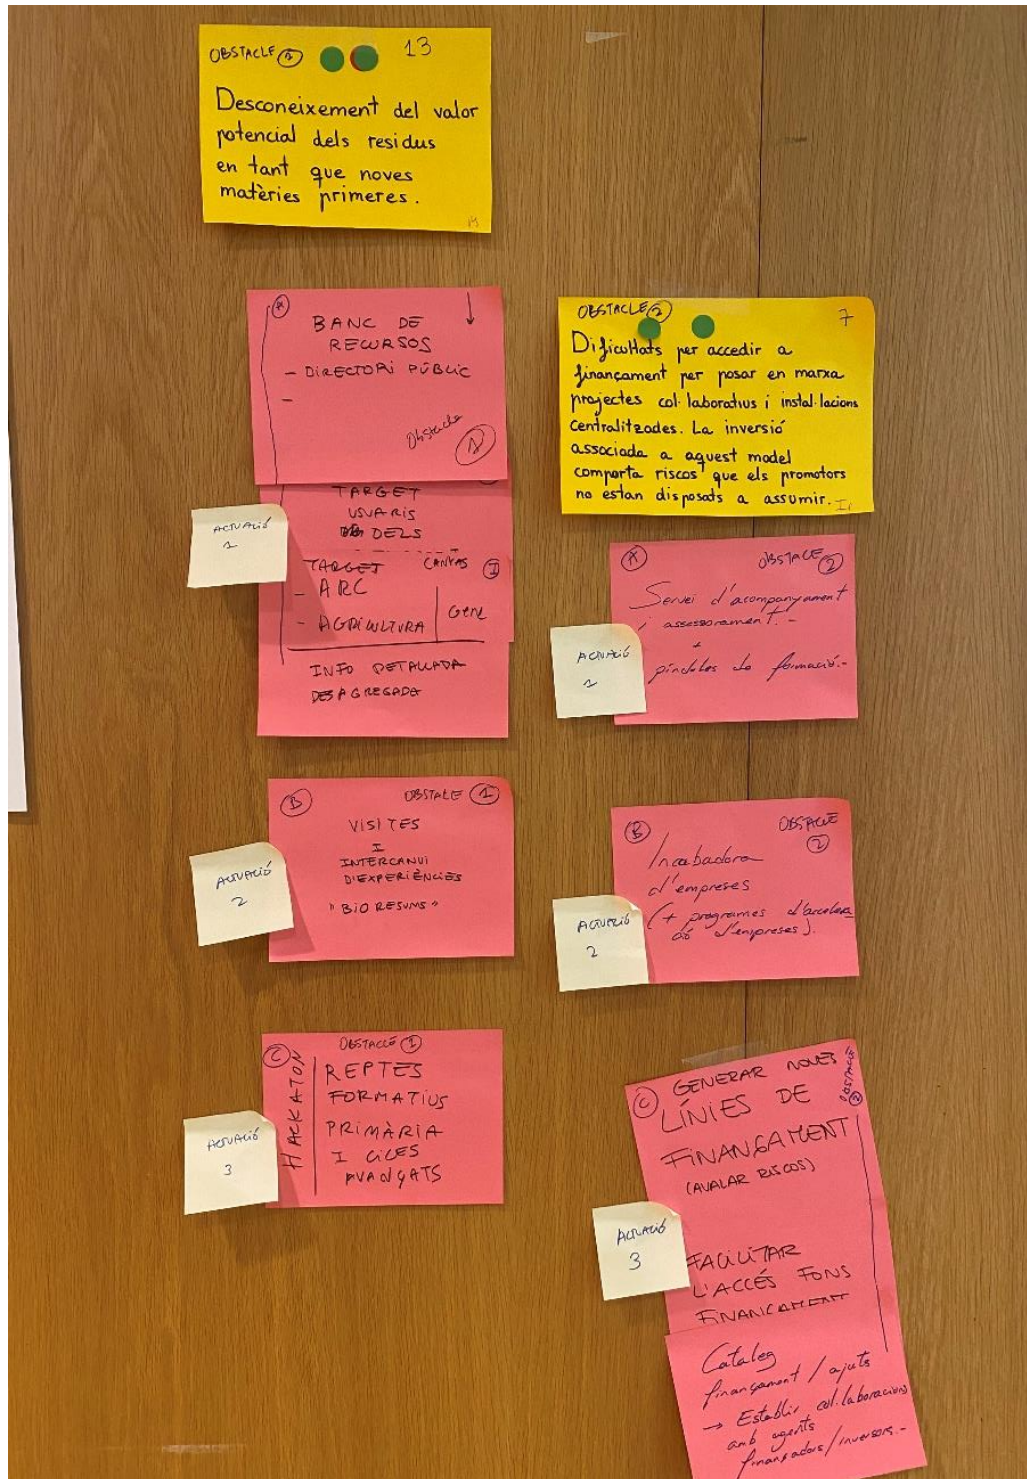 OBSTACLE 1 13
Desconeixement del valor
potencial dels residus
en tant que noves
matèries primeres.
A
BANC DE
RECURSOS
- DIRECTORI PÚBLIC
-
Obstacle
1
TARGET
USUARIS
DELS
TARGET CANVAS I
- ARC
- AGRICULTURA
GENE
INFO DETALLADA
DESAGREGADA
ACTUACIÓ
1
B OBSTACLE 1
VISITES
I
INTERCANVI
D'EXPERIÈNCIES
"BIO RESUMS"
ACTUACIÓ
2
C OBSTACLE 1
HACKATON
REPTES
FORMATIUS
PRIMÀRIA
I CICLES
AVANÇATS
ACTUACIÓ
3
OBSTACLE 2 7
Dificultats per accedir a
finançament per posar en marxa
projectes col·laboratius i instal·lacions
centralitzades. La inversió
associada a aquest model
comporta riscos que els promotors
no estan disposats a assumir.
A OBSTACLE 2
Servei d'acompanyament
i assessorament.-
+
píndoles de formació.-
ACTUACIÓ
1
B OBSTACLE
2
Incubadora
d'empreses
(+ programes d'accelera
ció d'empreses).
ACTUACIÓ
2
C GENERAR NOVES
OBSTACLE 2
LÍNIES DE
FINANÇAMENT
(AVALAR RISCOS)
FACILITAR
L'ACCÉS FONS
FINANÇAMENT
ACTUACIÓ
3
Catàleg
finançament / ajuts
→ Establir col·laboracions
amb agents
finançadors/inversors.-